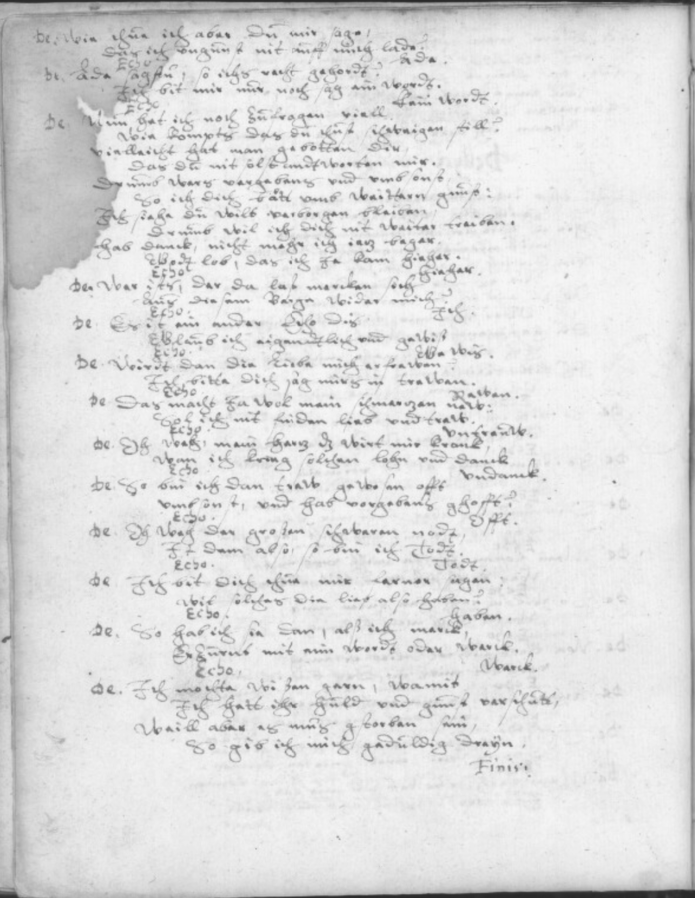 De. Wie thue ich aber du mir sage,
Das ich ungunst nit uff mich lade?
Echo. Ade.
De. Ade sagstu, so ichs recht gehördt?
Ich bit mir nur noch sag ain wordt.
Echo. kain wordt.
De. Nun hat ich noch zufragen viell.
Wie kompts das du thust schweigen still?
vielleicht hat man gebotten dir,
Das du nit solt andtworten mir.
Drumb wers vergebens und umb sonst
So ich dich bätt umb weittern gunst:
Ich siehe du wilt verborgen bleiben,
Drumb wil ich dich nit weitter treiben.
hab danck, nicht mehr ich ietz beger.
Gott lob, das ich ja kam hieher.
Echo. hieher.
De. Wer ists, der da las mercken sich
Aus diesem Berge wider mich?
Echo. Ich.
De. Es ist ein ander Echo dis
Glaub ich aigendtlich und gewis
Echo. Gewis.
De. Wirdt dan die Liebe mich erfrewen?
Ich bitte dich sag mirs in trewen.
Echo. Rewen.
De. Das macht ja wol mein schmertzen new.
Sol ich nit finden lieb und trew.
Echo. untrew.
De. Ach weh, mein hertz dz wirt mir kranck,
wan ich krieg solchen lohn und danck
Echo. undanck.
De. So bin ich dan trew gewesen offt
umb sonst, und hab vergebens ghofft?
Echo. Offt.
De. Ach weh der grossen schweren nodt,
Ist dem also, so bin ich Todt.
Echo. Todt.
De. Ich bit dich thue mir ferner sagen:
wil solches die lieb also haben?
Echo. haben.
De. So hab ich sie dan, als ich merck,
Erzürnt mit ain wordt oder werck.
Echo. Werck.
De. Ich möchte wissen gern, wamit
Ich hett ihr huld und gunst verschütt,
Weill aber es mus gstorben sein,
So gib ich mich gedüldig dreyn.
Finis.